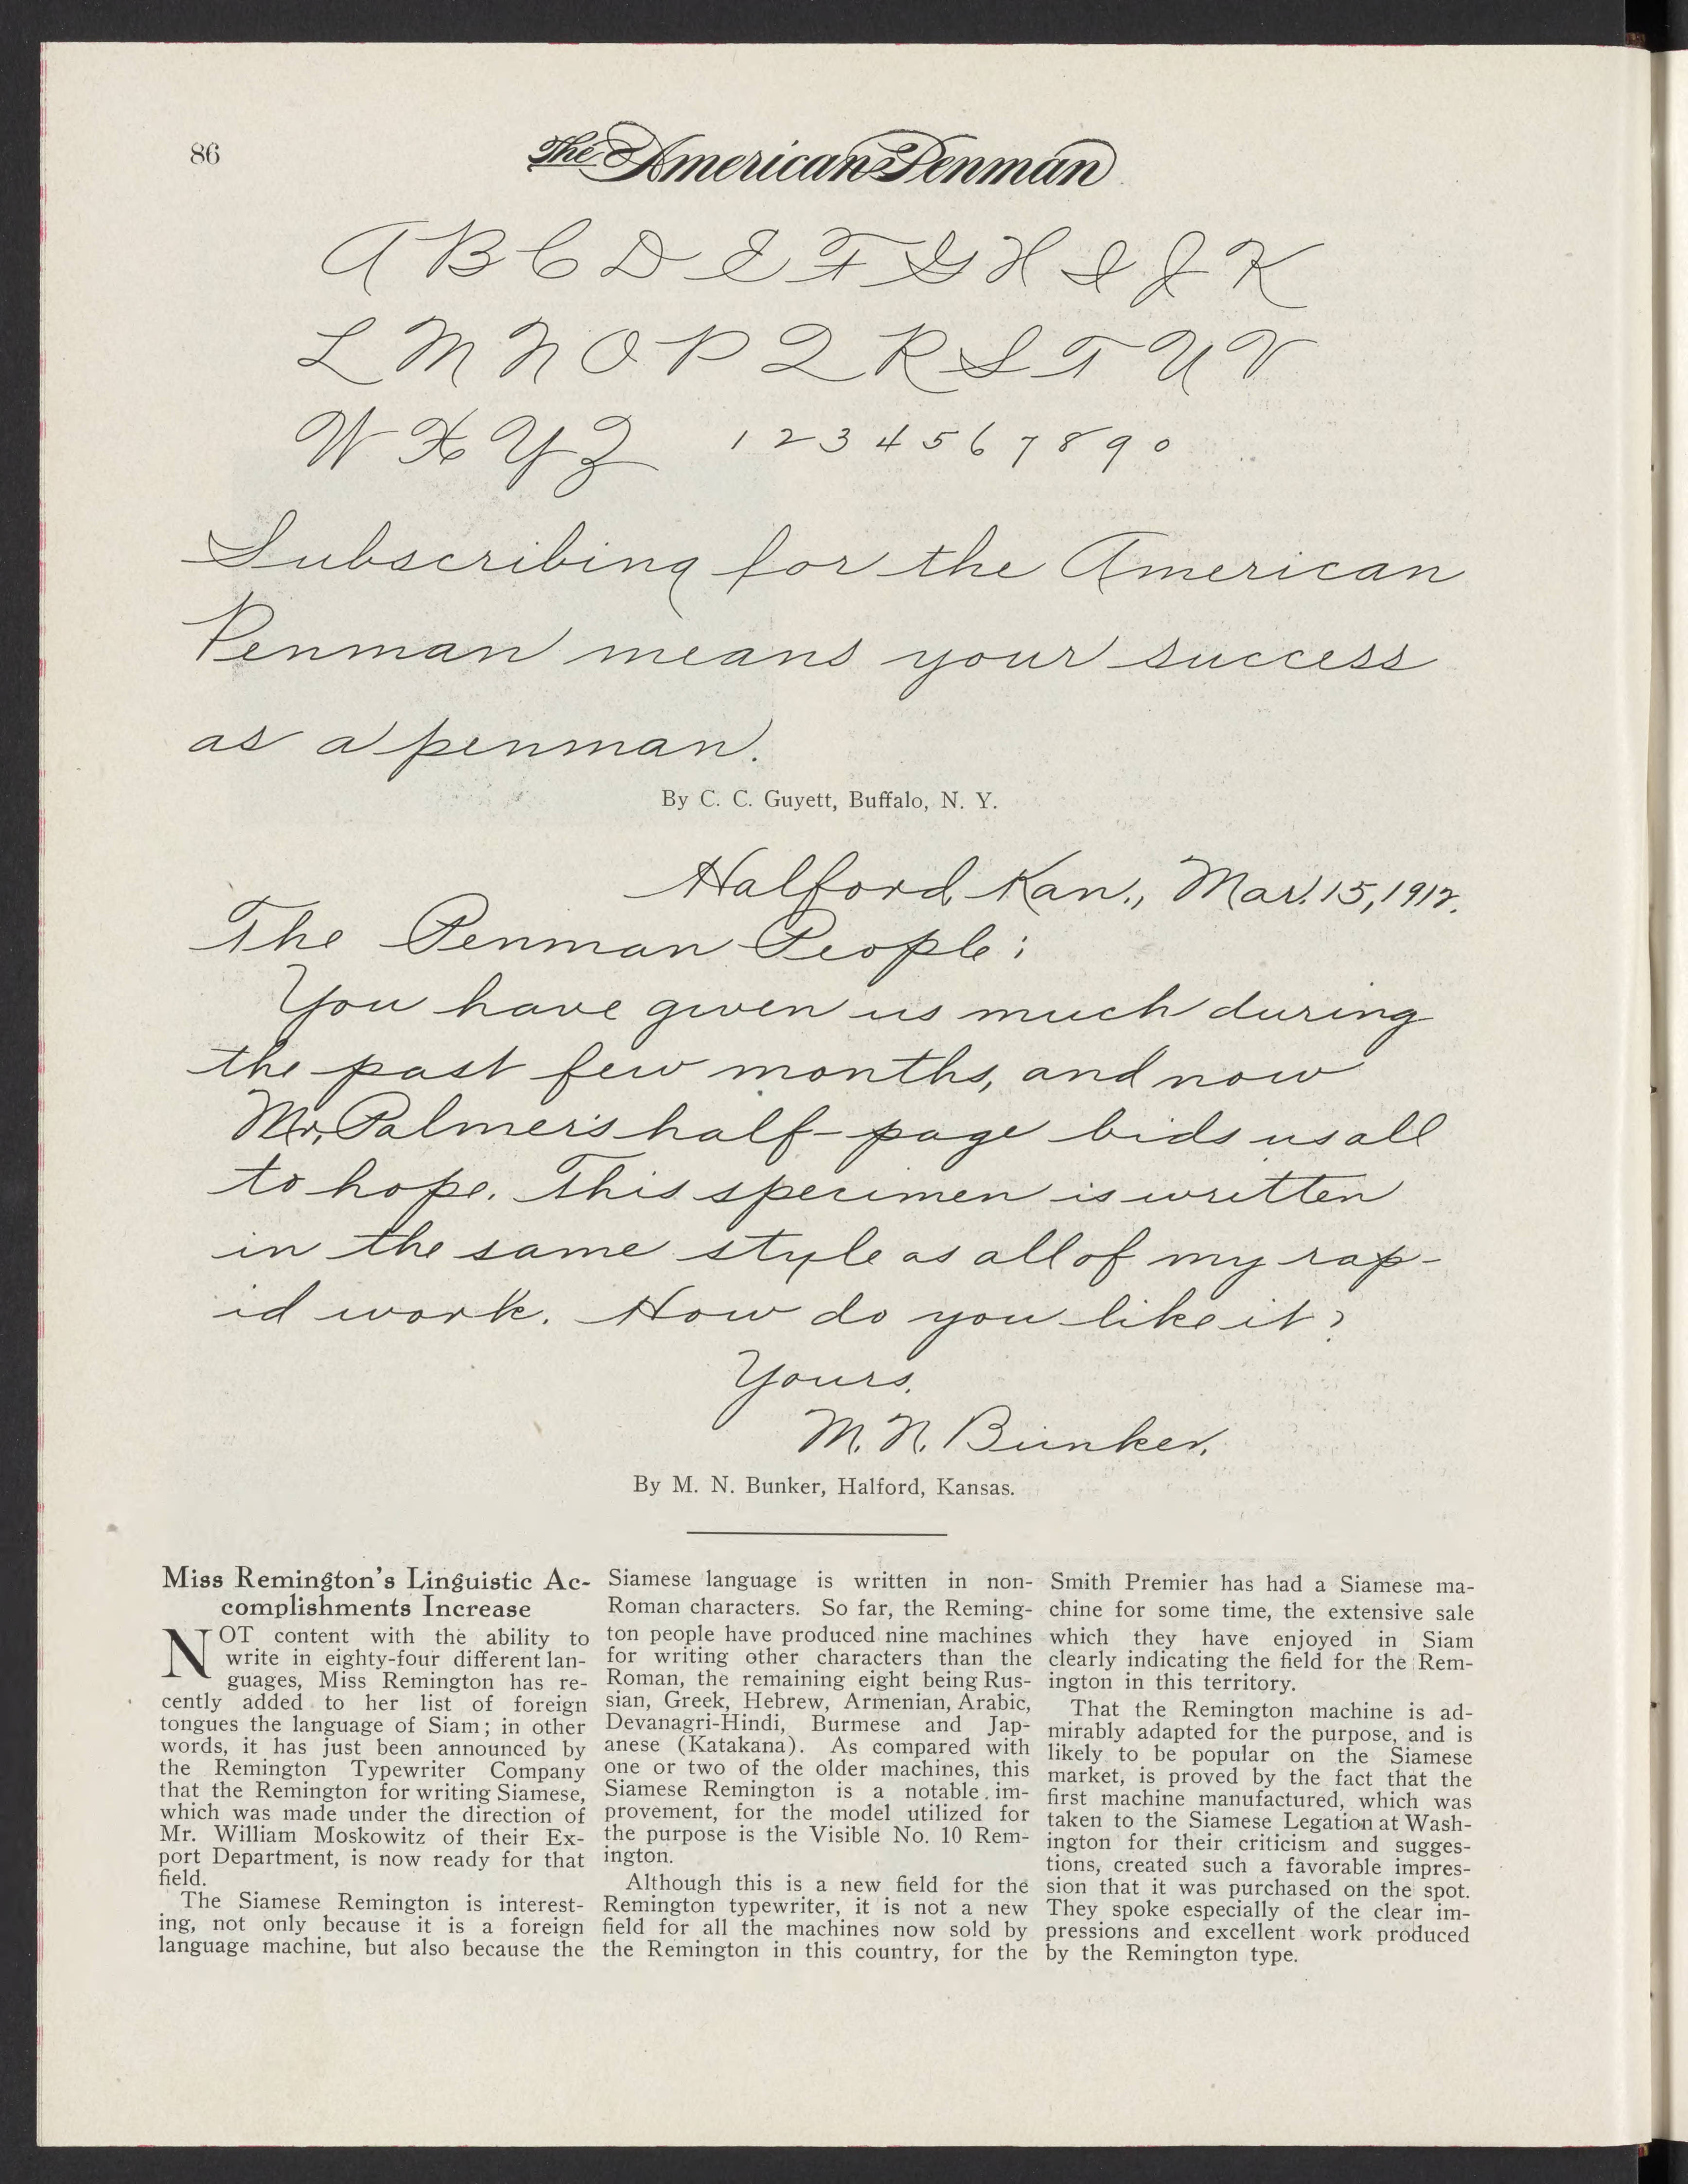 86
The American Penman
A B C D E F G H I J K
L M N O P Q R S T U V
W X Y Z 1 2 3 4 5 6 7 8 9 0
Subscribing for the American
Penman means your success
as a penman.
By C. C. Guyett, Buffalo, N. Y.
Halford, Kan., Mar. 15, 1912.
The Penman People:
You have given us much during
the past few months, and now
Mr. Palmer's half-page bids us all
to hope. This specimen is written
in the same style as all of my rap-
id work. How do you like it?
Yours,
M. N. Bunker.
By M. N. Bunker, Halford, Kansas.
Miss Remington's Linguistic Ac-
complishments Increase
NOT content with the ability to
write in eighty-four different lan-
guages, Miss Remington has re-
cently added to her list of foreign
tongues the language of Siam; in other
words, it has just been announced by
the Remington Typewriter Company
that the Remington for writing Siamese,
which was made under the direction of
Mr. William Moskowitz of their Ex-
port Department, is now ready for that
field.
The Siamese Remington is interest-
ing, not only because it is a foreign
language machine, but also because the
Siamese language is written in non-
Roman characters. So far, the Reming-
ton people have produced nine machines
for writing other characters than the
Roman, the remaining eight being Rus-
sian, Greek, Hebrew, Armenian, Arabic,
Devanagri-Hindi, Burmese and Jap-
anese (Katakana). As compared with
one or two of the older machines, this
Siamese Remington is a notable im-
provement, for the model utilized for
the purpose is the Visible No. 10 Rem-
ington.
Although this is a new field for the
Remington typewriter, it is not a new
field for all the machines now sold by
the Remington in this country, for the
Smith Premier has had a Siamese ma-
chine for some time, the extensive sale
which they have enjoyed in Siam
clearly indicating the field for the Rem-
ington in this territory.
That the Remington machine is ad-
mirably adapted for the purpose, and is
likely to be popular on the Siamese
market, is proved by the fact that the
first machine manufactured, which was
taken to the Siamese Legation at Wash-
ington for their criticism and sugges-
tions, created such a favorable impres-
sion that it was purchased on the spot.
They spoke especially of the clear im-
pressions and excellent work produced
by the Remington type.